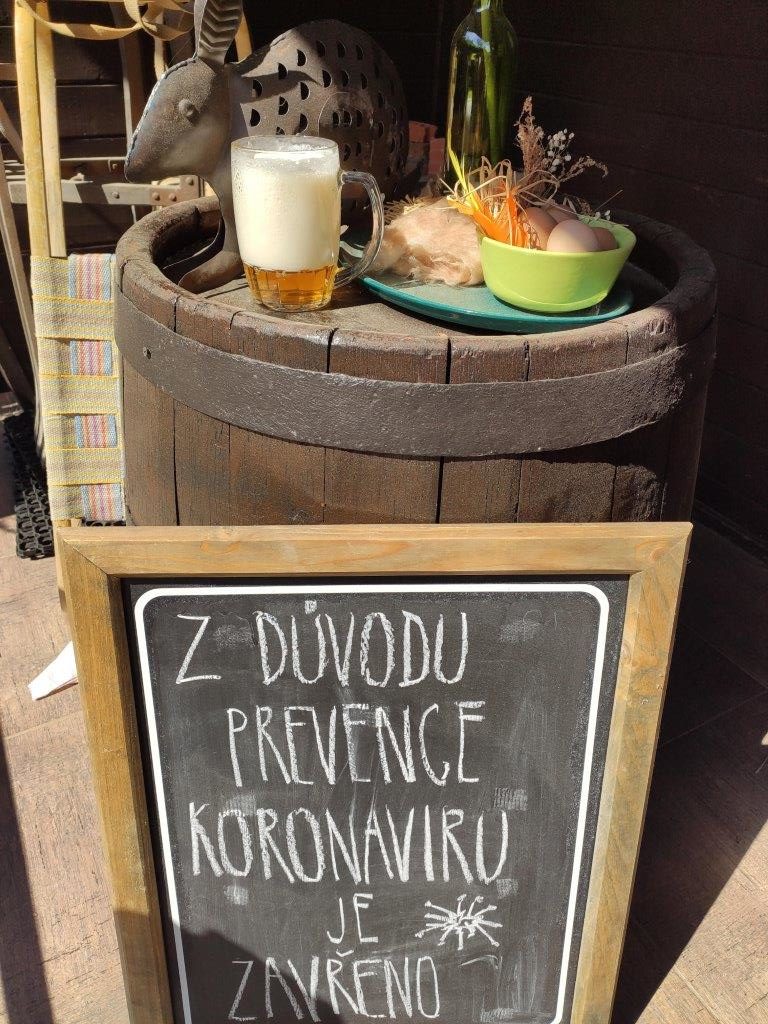 Z DŮVODU
PREVENCE
KORONAVIRU
JE
ZAVŘENO